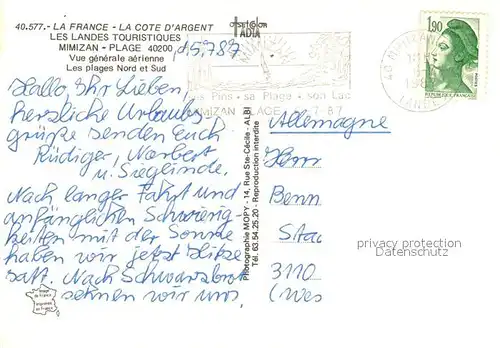 40.577.- LA FRANCE - LA COTE D'ARGENT
LES LANDES TOURISTIQUES
MIMIZAN - PLAGE 40200,
Vue générale aérienne
Les plages Nord et Sud
15.7.87
Hallo, Ihr Lieben,
herzliche Urlaubs
grüße senden euch
Rüdiger, Norbert
u. Sieglinde.
Nach langer Fahrt und
anfänglichen Schwierig-
keiten mit der Sonne
haben wir jetzt Hitze
satt. Nach Schwarzbrot
sehnen wir uns
ADIA
MIMIZAN
ses Pins - sa Plage - son Lac
MIMIZAN PLAGE 7.87
1,90
REPUBLIQUE FRANCAISE
Photographie MOPY - 14, Rue Ste-Cécile - ALBI
Tél. 63.54.25.20 - Reproduction interdite
Allemagne
Benn
3110
(Wes
Image
de France
imprimé
en France
privacy protection
Datenschutz